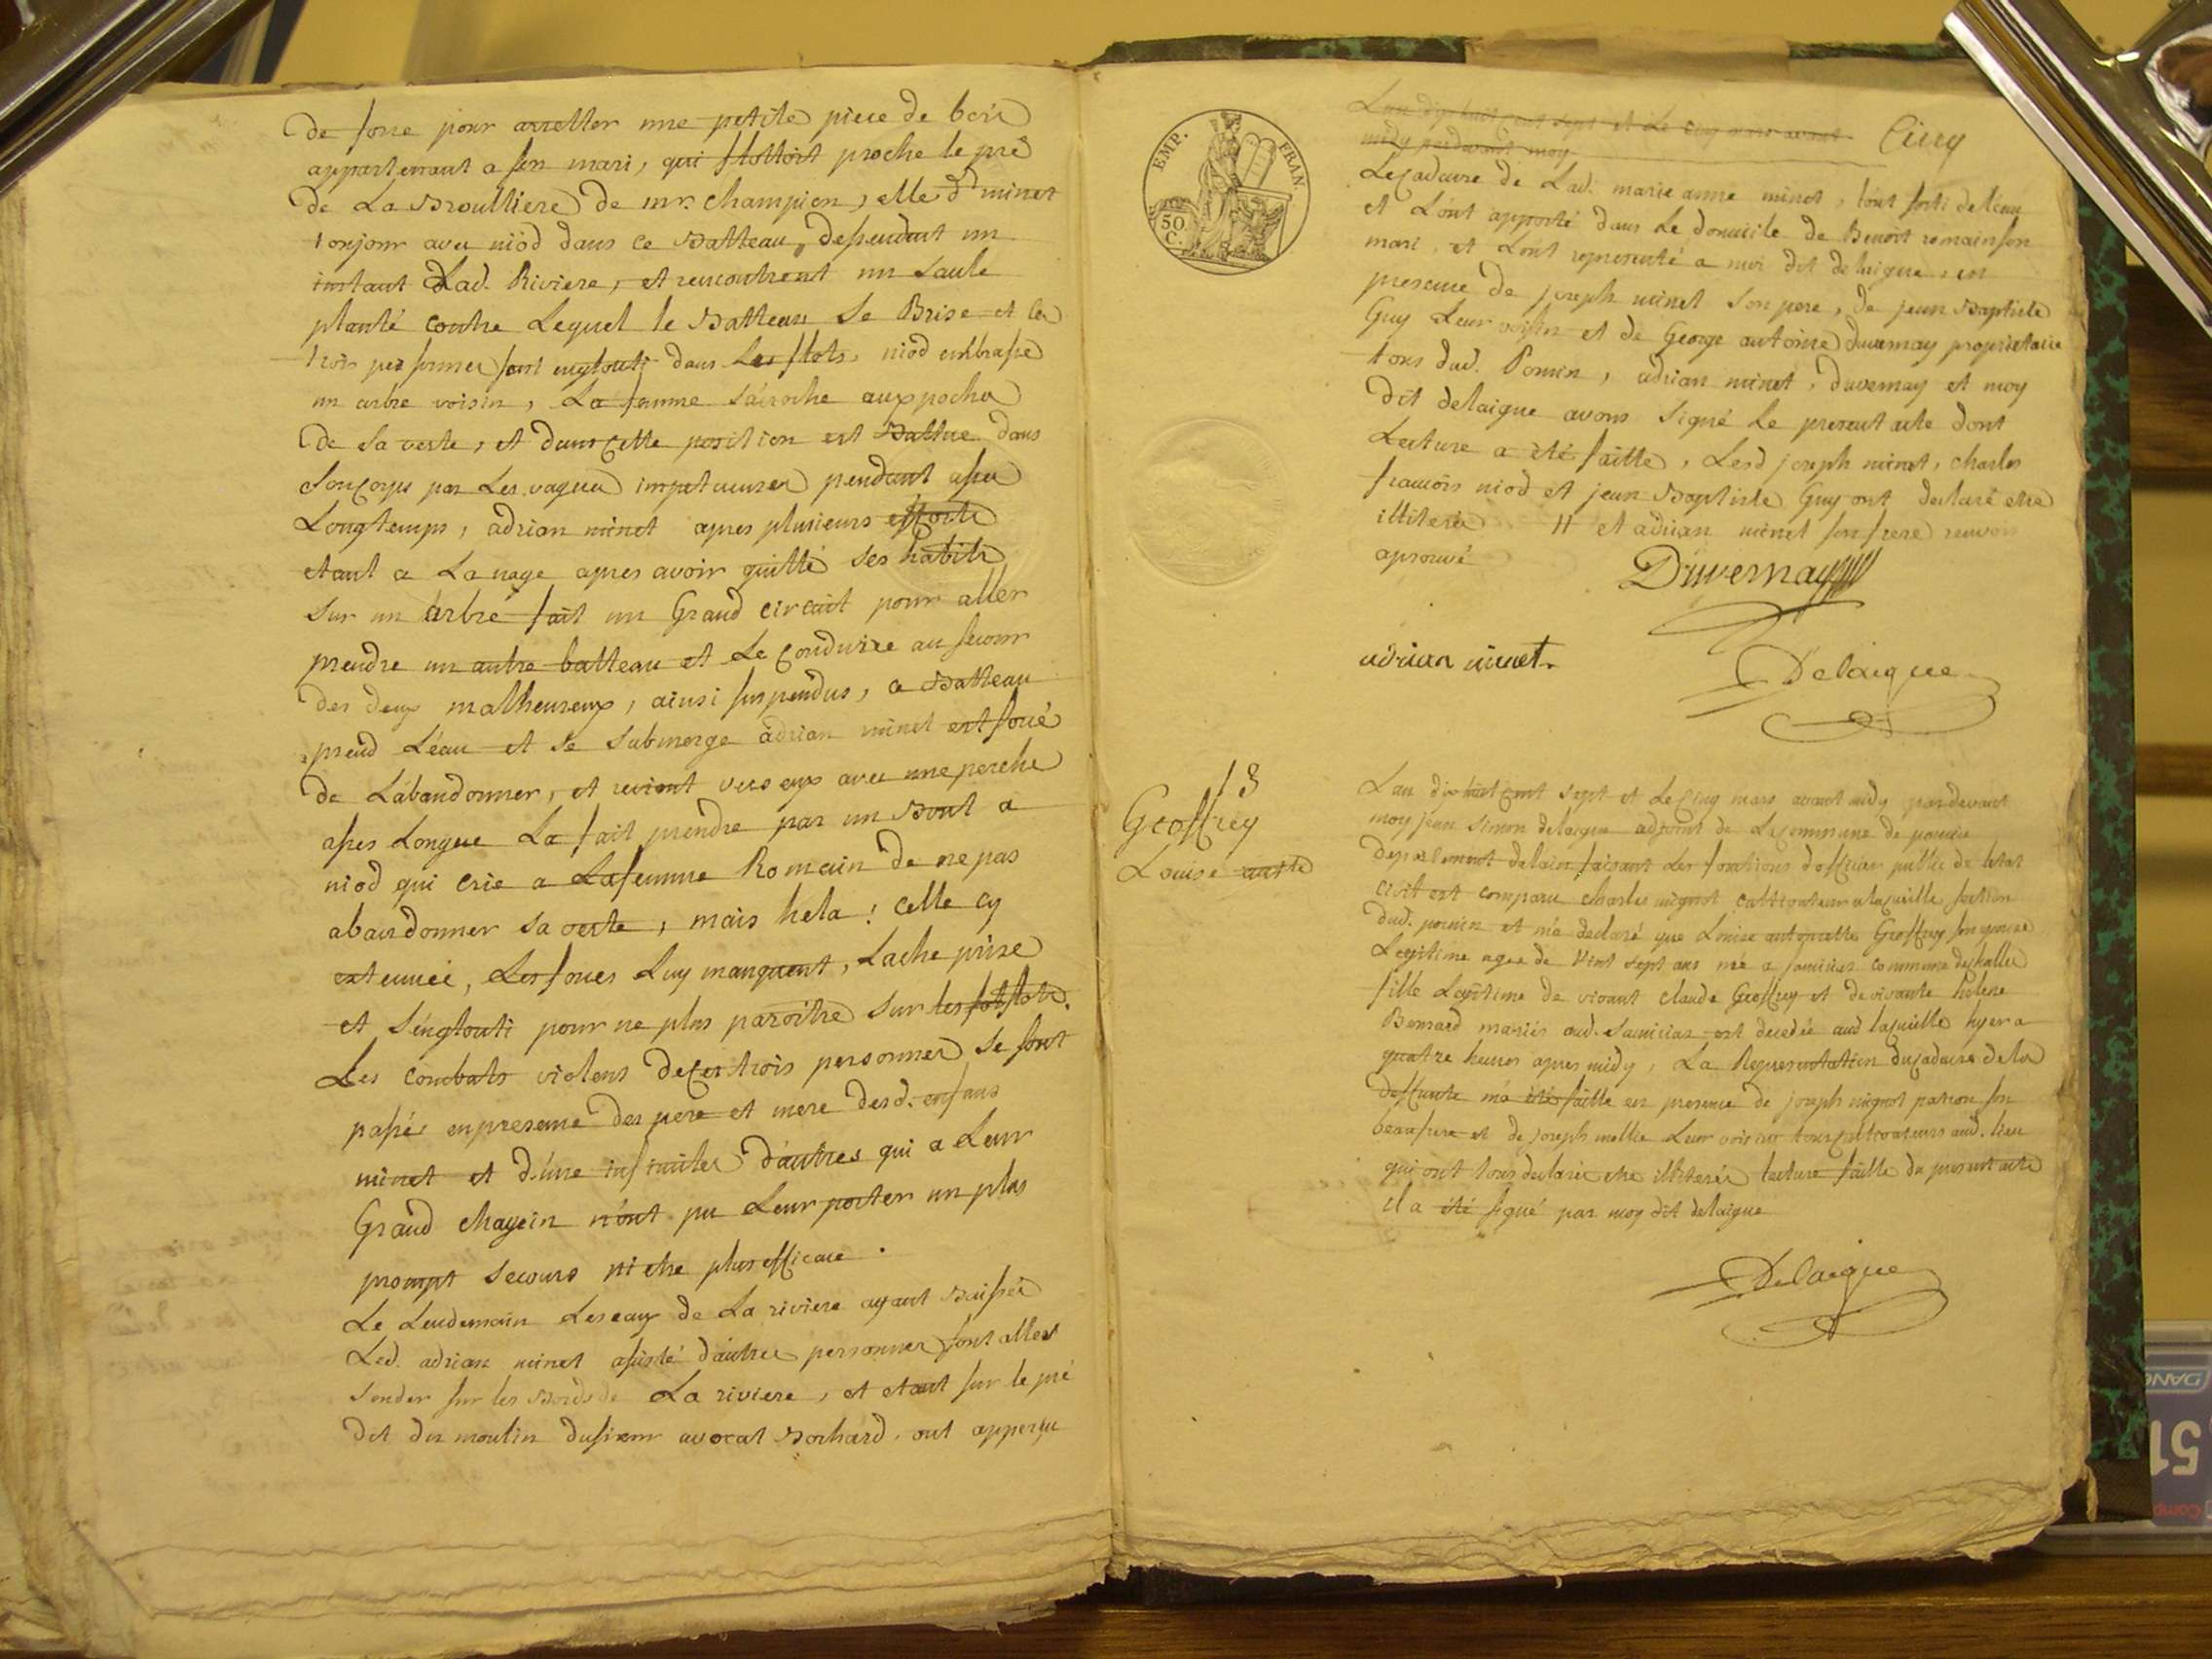 de force pour arretter une petite piece de bois
appartenant a son mari, qui flottoit proche le pré
de La Broulliere de mr. Champion, elle dt minet
tonjour avec niod dans ce Batteau, dessendent un
instant Lad. Riviere, et rencontrent un Saule
planté contre Lequel le Batteau Se Brise et les
trois personnes sont englouti dans Les flots, niod embrasse
un arbre voisin, La femme s'acroche aux poches
de sa veste, et dans cette position est Battue dans
son corps par Les vagues impetueuses pendant assez
Longtemps, adrian minet apres plusieurs efforts
etant a La nage apres avoir quitté ses habits
sur un arbre fait un Grand circuit pour aller
prendre un autre batteau et Le Conduire au secour
des deux malheureux, ainsi suspendus, ce Batteau
prend L'éau et se submerge adrian minet est forcé
de L'abandonner, et revient vers eux avec une perche
asses Longue La fait prendre par un Bout a
niod qui crie a La femme Romain de ne pas
abandonner sa veste, mais hela! Celle cy
extenuée, Les forces Luy manquent, Lache prise
et s'englouti pour ne plus paroitre sur les flots.
Les Combats violens de ces trois personnes se sont
passés en presence des pere et mere desd. enfans
minet et d'une infinités d'autres qui a Leur
Grand chagrin n'ont pu Leur porter un plus
prompt secours ni etre plus efficace.
Le Lendemain Les eaux de La riviere ayant Baissée
Led. adrian minet assisté d'autres personnes sont allez
sonder sur les Bords de La riviere, et etant sur le pré
dit du moulin du sieur avocat Bochard, ont apperçu
EMP. FRAN.
50 C.
L'an dix huit cent sept et Le cinq mars avant
midy pardevant moy
Le cadavre de Lad. marie anne minet, l'ont sorti de l'eau
et L'ont apporté dans Le domicile de Benoit romain son
mari, et L'ont representé a moi dit delaigue, en
presence de joseph minet son pere, de jean Baptiste
Guy Leur voisin et de George antoine duvernay proprietaire
tous dud. Poncin, adrian minet, duvernay et moy
dit delaigue avons signé Le present acte dont
Lecture a été faitte, Lesd joseph minet, charles
francois niod et jean Baptiste Guy ont declaré etre
illiterés # et adrian minet son frere renvoi
aprouvé
Duvernay
adrian minet
Delaigue
18
Geoffrey
Louise antte
L'an dix huit cent sept et Le cinq mars avant midy pardevant
moy jean simon delaigue adjoint de La commune de poncin
departement de lain faisant Les fonctions d'officier public de letat
civil est comparu charles mignot cultivateur a lacueille section
dud. poncin et m'a declaré que Louise antoinette Geoffrey son epouse
Legitime agee de vint sept ans née a commune de challes
fille Legitime de vivant claude Geoffrey et de vivante helene
Bernard mariés aud. est decedée aud lacueille hyer a
quatre heures apres midy, La Representation du cadavre de la
deffunte m'a été faitte en presence de joseph mignot patron son
beaufrere et de joseph Leur voisin tous cultivateurs aud. lieu
qui ont tous declarés etre illiterés lecture faitte du present acte
il a été signé par moy dit delaigue
Delaigue
51